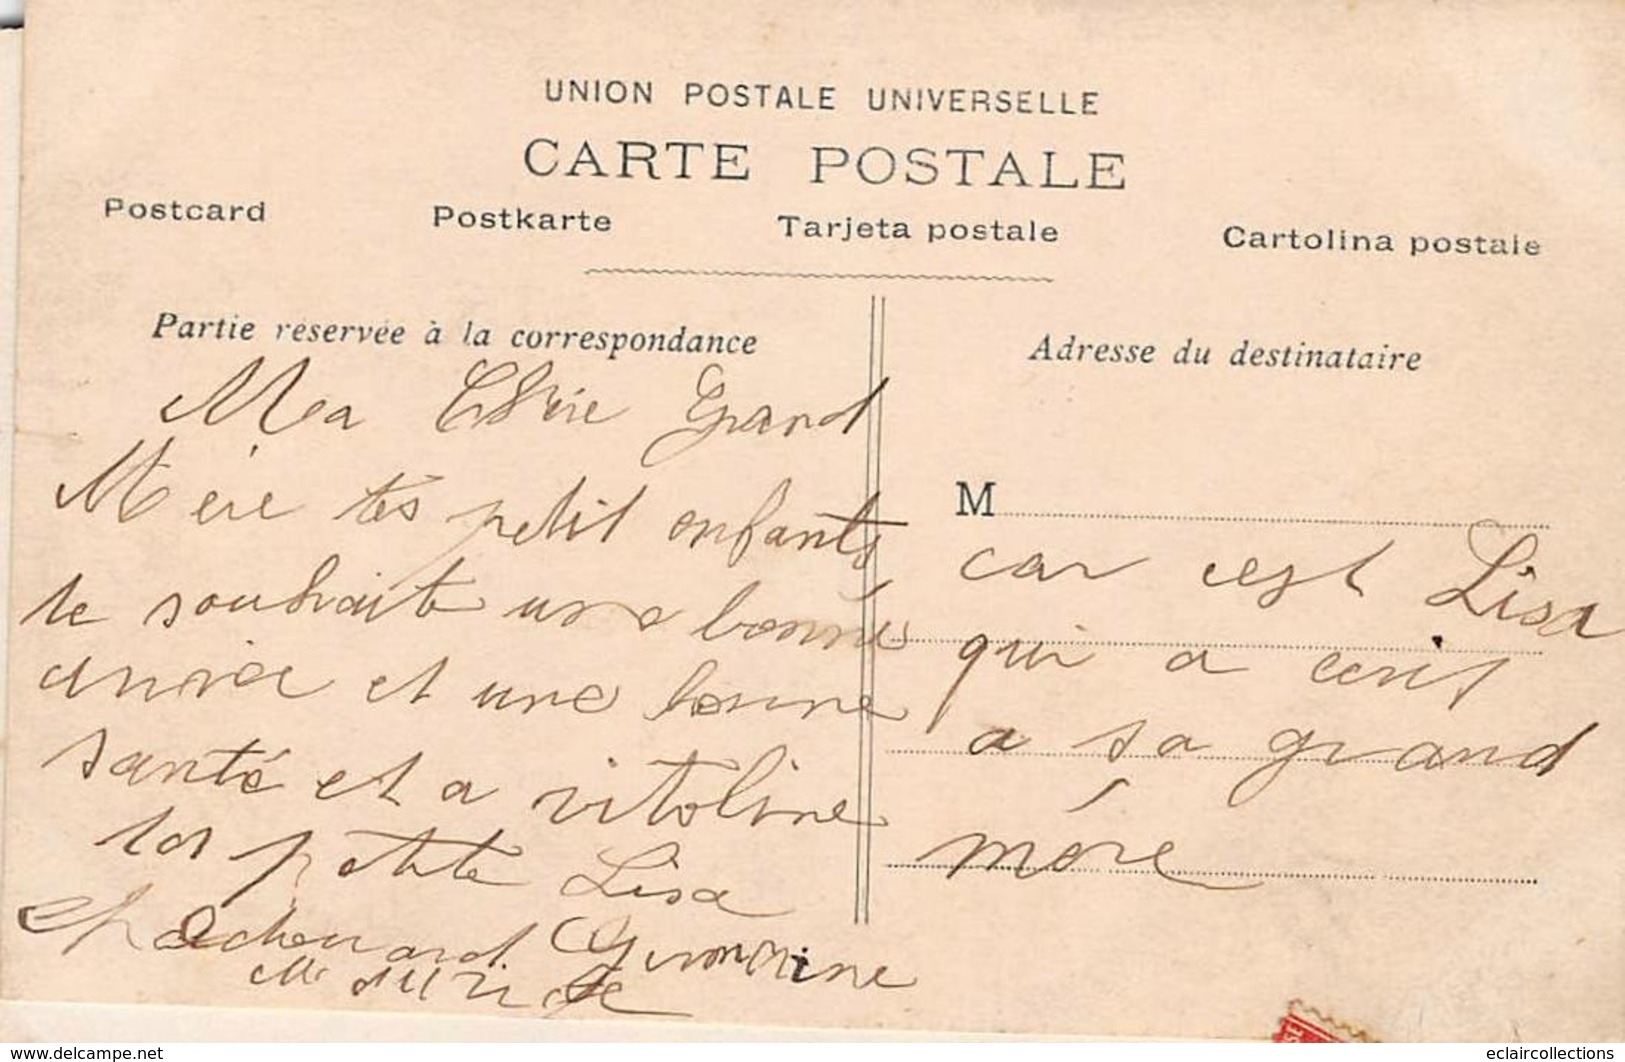 UNION POSTALE UNIVERSELLE
CARTE POSTALE
Postcard Postkarte Tarjeta postale Cartolina postale
Partie réservée à la correspondance
Ma Chère Grand
Mère tes petit enfants
te souhaite une bonne
année et une bonne
santé et a vitoline
ta petite Lisa
Germaine
Maurice
Adresse du destinataire
M
car cest Lisa
qui a ecrit
a sa grand
mére
www.delcampe.net
eclaircollections